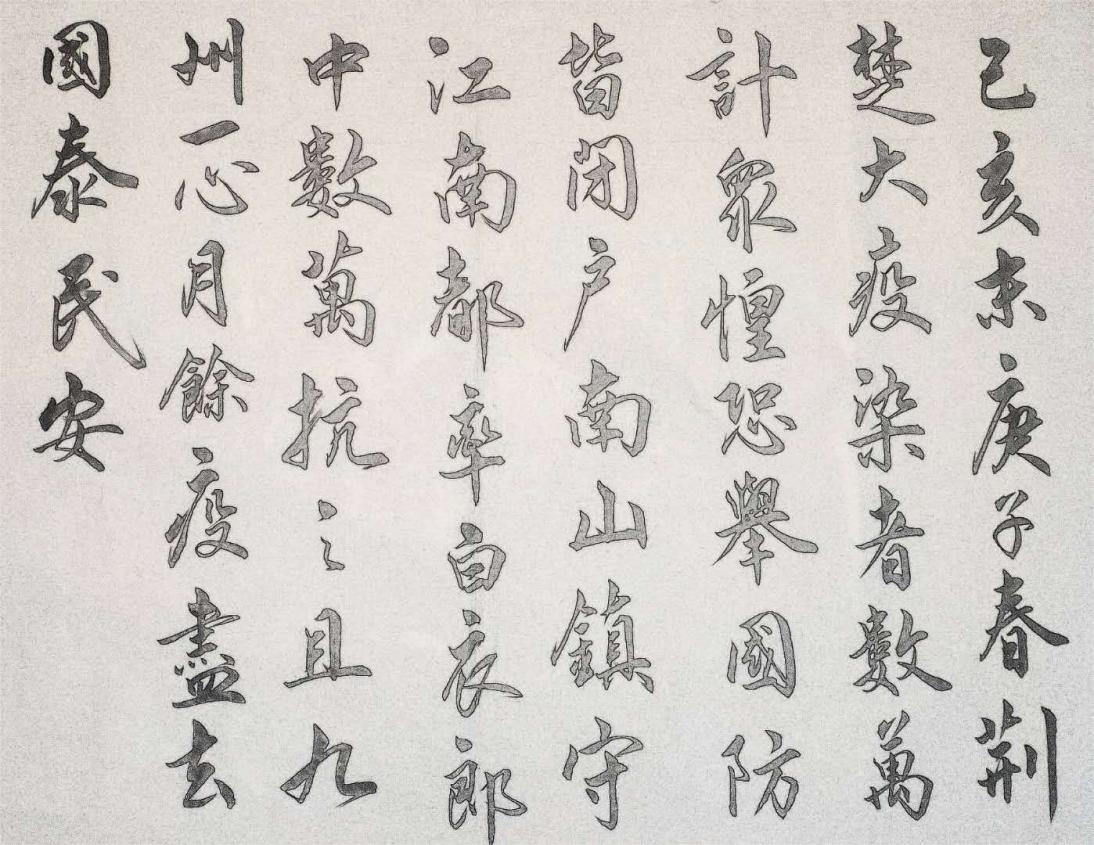 己亥末庚子春荆
楚大疫染者數萬
計眾惶恐舉國防
皆閉户南山鎮守
江南都率白衣郎
中數萬抗之且九
州一心月餘疫盡去
國泰民安